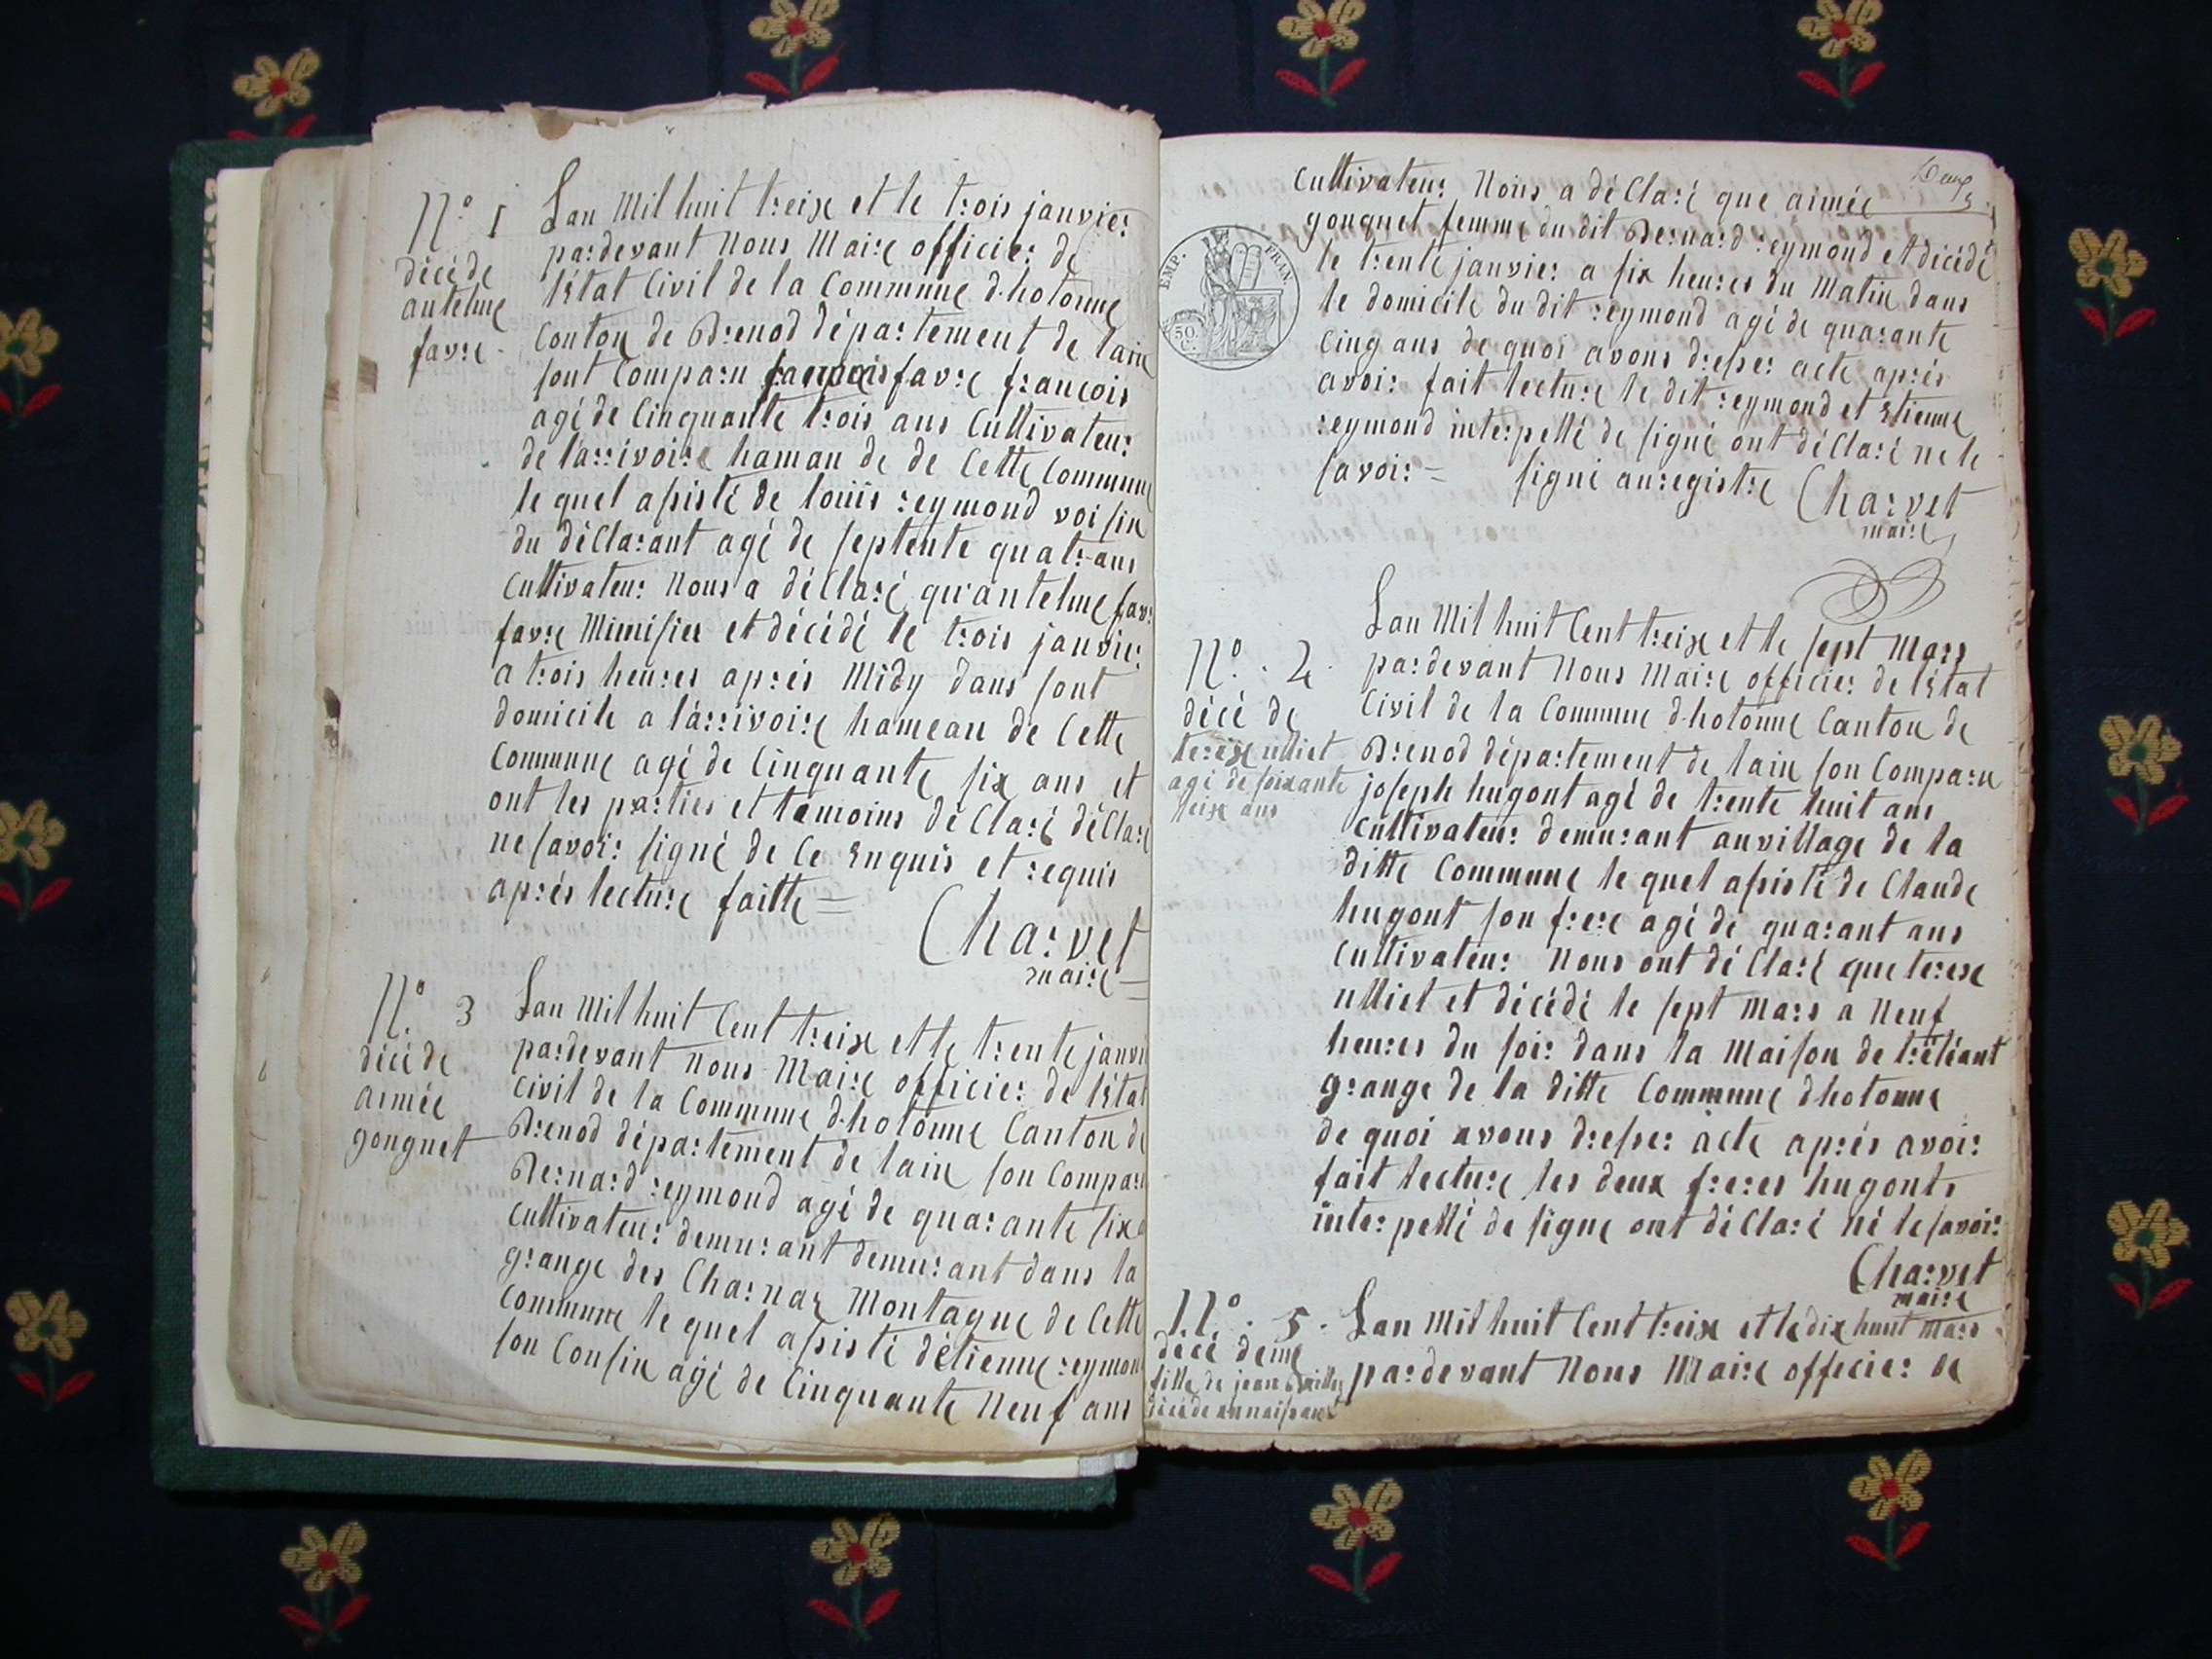 N.° 1
décé de
antelme
favre
Lan Mil huit treize et le trois janvier
pardevant Nous Maire officier de
létat Civil de la Commune d.hotonne
Conton de Brenod département de lain
sont Comparu favre françois
agé de Cinquante trois ans Cultivateur
de lárrivoire haman de de Cette Commune
le quel asisté de louis reymond voisin
du déClarant agé de septente quatr-ans
Cultivateur Nous a déClaré qu'antelme favr
favre Mimisier et décédé le trois janvier
a trois heures aprés Midy dans sont
domicile a lárrivoire hameau de Cette
Commune agé de Cinquante six ans et
ont les parties et témoins déClaré déClaré
ne savoir signé de Ce Enquis et requis
aprés lecture faitte =
Charvet
maire
N.° 3
décé de
aimée
gonguet
Lan Mil huit Cent treize et le trente janvi
pardevant nous Maire officier de létat
Civil de la Commune d.hotonne Canton de
Brenod département de lain son Comparu
Bernard reymond agé de quarante six
Cultivateur demurant demurant dans la
grange des Charnaz Montagne de Cette
Commune le quel asisté détienne reymon
son Cousin agé de Cinquante Neuf ans
Deux
Cultivateur Nous a déClaré que aimée
gonguet femme du dit Bernard reymond et décédé
le trente janvier a six heures du Matin dans
le domicile du dit reymond agé de quarante
Cinq ans de quoi avons dresser acte aprés
avoir fait lecture le dit reymond et Etienne
reymond interpellé de signé ont déClaré ne le
savoir = signé au registre Charvet
maire
EMP. FRAN.
50 C.
N.° 4
décé de
terexe ulliet
agé de soixante
treize ans
Lan Mil huit Cent treize et le sept Mars
pardevant Nous Maire officier de létat
Civil de la Commune d.hotonne Canton de
Brenod département de lain son Comparu
joseph hugont agé de trente huit ans
Cultivateur demurant au village de la
ditte Commune le quel asisté de Claude
hugont son frere agé de quarant ans
Cultivateur Nous ont déClaré que terexe
ulliet et décédé le sept Mars a Neuf
heures du soir dans la Maison de tréléant
grange de la ditte Commune dhotonne
de quoi avons dresser acte aprés avoir
fait lecture les deux freres hugonts
interpellé de signe ont déClaré né le savoir
Charvet
maire
N.° 5.
décé deune
fille de jean
décédé au naisant
Lan Mil huit Cent treize et le dix huit Mars
pardevant Nous Maire officier de